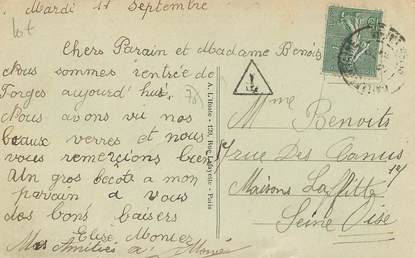 Mardi 11 Septembre
Chers Parain et Madame Benoits
Nous sommes rentrée de
Forges aujourd'hui.
Nous avons vu nos
beaux verres et nous
vous remercions bien
Un gros bécots a mon
parain a vous
des bons baisers
Elise Montez
Mes Amitiés a
A. L'Hoste - 139, Rue Lafayette - Paris
1
Mme Benoits
17 rue Des Canus 17
Maisons Laffitte
Seine Oise